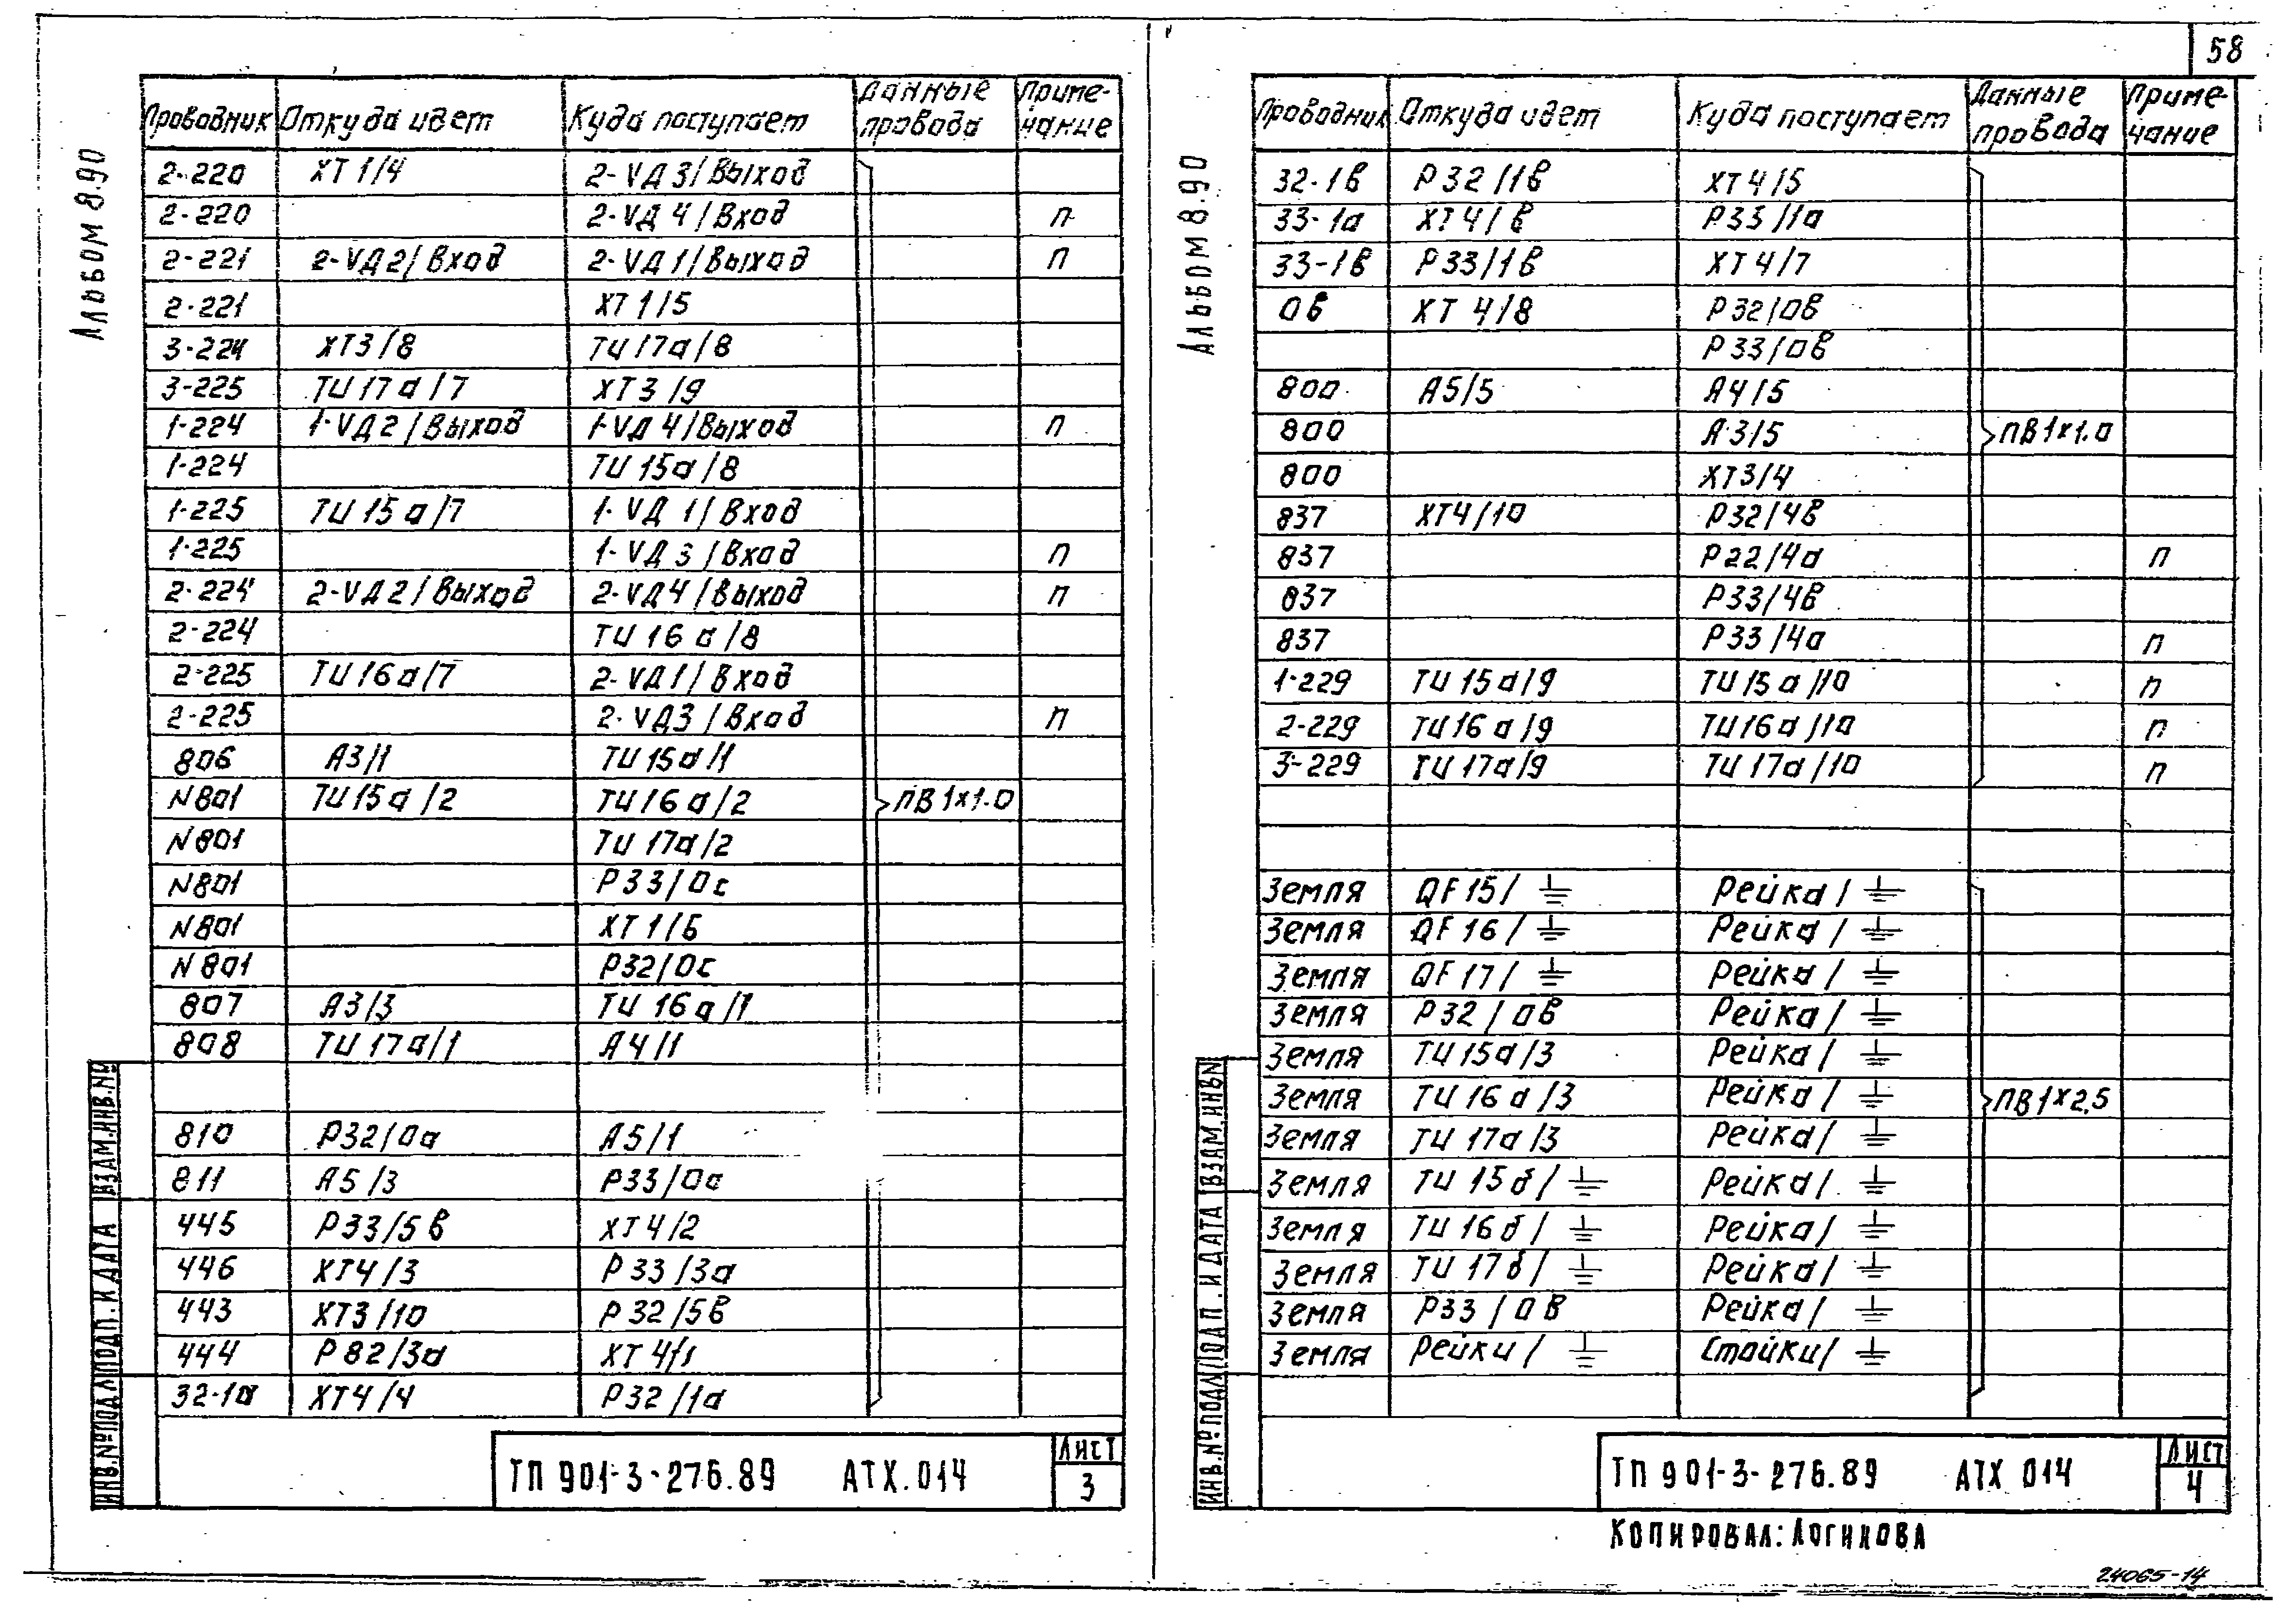 58
Альбом 8.90
Проводник Откуда идет Куда поступает Данные провода Примечание
2-220 ХТ 1/4 2-VД 3/Выход
2-220 2-VД 4/Вход п
2-221 2-VД2/Вход 2-VД1/Выход п
2-221 ХТ 1/5
3-224 ХТ3/8 ТЦ 17а/8
3-225 ТЦ 17а/7 ХТ3/9
1-224 1-VД2/Выход 1-VД4/Выход п
1-224 ТЦ 15а/8
1-225 ТЦ 15а/7 1-VД 1/Вход
1-225 1-VД 3/Вход п
2-224 2-VД2/Выход 2-VД4/Выход п
2-224 ТЦ 16а/8
2-225 ТЦ 16а/7 2-VД1/Вход
2-225 2-VД3/Вход п
806 А3/1 ТЦ 15а/1
N801 ТЦ 15а/2 ТЦ 16а/2 ПВ 1х1.0
N801 ТЦ 17а/2
N801 Р33/0с
N801 ХТ 1/6
N801 Р32/0с
807 А3/3 ТЦ 16а/1
808 ТЦ 17а/1 А4/1
810 Р32/0а А5/1
811 А5/3 Р33/0а
445 Р33/5в ХТ4/2
446 ХТ4/3 Р33/3а
443 ХТ3/10 Р32/5в
444 Р82/3а ХТ4/1
32-1а ХТ4/4 Р32/1а
ИНВ.№ПОДЛ ПОДП. И ДАТА ВЗАМ.ИНВ.№
ТП 901-3-276.89 АТХ.014 ЛИСТ 3
Альбом 8.90
Проводник Откуда идет Куда поступает Данные провода Примечание
32-1в Р32/1в ХТ4/5
33-1а ХТ4/6 Р33/1а
33-1в Р33/1в ХТ4/7
0в ХТ 4/8 Р32/0в
Р33/0в
800 А5/5 А4/5
800 А3/5 ПВ 1х1.0
800 ХТ3/4
837 ХТ4/10 Р32/4в
837 Р22/4а п
837 Р33/4в
837 Р33/4а п
1-229 ТЦ 15а/9 ТЦ 15а/10 п
2-229 ТЦ 16а/9 ТЦ 16а/10 п
3-229 ТЦ 17а/9 ТЦ 17а/10 п
Земля QF 15/⏚ Рейка/⏚
Земля QF 16/⏚ Рейка/⏚
Земля QF 17/⏚ Рейка/⏚
Земля Р32/0в Рейка/⏚
Земля ТЦ 15а/3 Рейка/⏚
Земля ТЦ 16а/3 Рейка/⏚ ПВ 1х2,5
Земля ТЦ 17а/3 Рейка/⏚
Земля ТЦ 15б/⏚ Рейка/⏚
Земля ТЦ 16б/⏚ Рейка/⏚
Земля ТЦ 17б/⏚ Рейка/⏚
Земля Р33/0в Рейка/⏚
Земля Рейки/⏚ Стойки/⏚
ИНВ.№ПОДЛ ПОДП. И ДАТА ВЗАМ.ИНВ№
ТП 901-3-276.89 АТХ 014 ЛИСТ 4
КОПИРОВАЛ: ЛОГИНОВА
24065-14